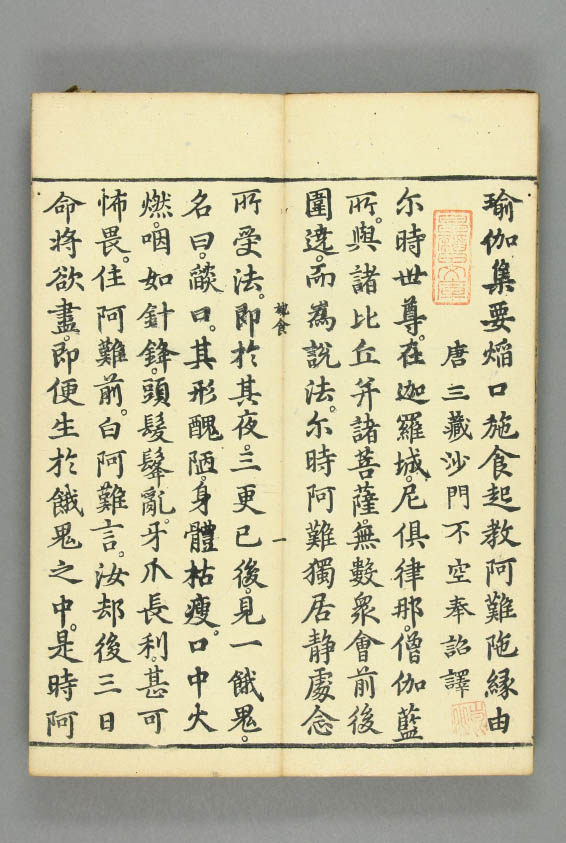 瑜伽集要焰口施食起教阿難陁縁由
唐三藏沙門不空奉詔譯
尓時世尊。在迦羅城。尼俱律那。僧伽藍
所。與諸比丘并諸菩薩。無數衆會前後
圍遶。而為說法。尓時阿難獨居静處念
施食 一
所受法。即於其夜。三更已後。見一餓鬼。
名曰。燄口。其形醜陋。身體枯瘦。口中火
燃。咽如針鋒。頭髮鬔亂。牙爪長利。甚可
怖畏。住阿難前。白阿難言。汝却後三日
命将欲盡。即便生於餓鬼之中。是時阿